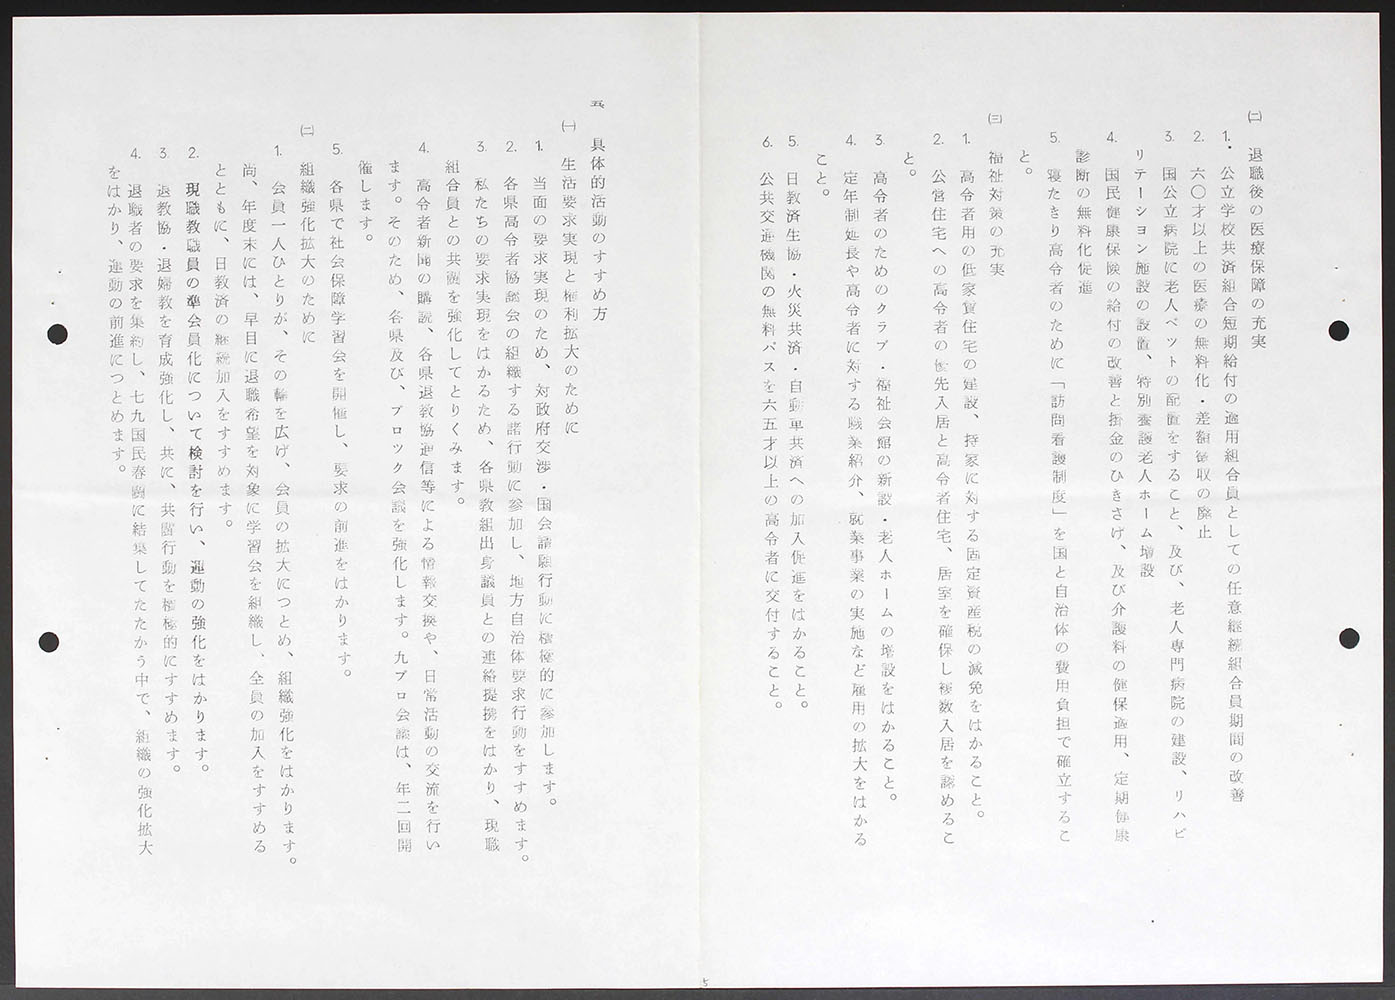 ㈡　退職後の医療保障の充実
1.　公立学校共済組合短期給付の適用組合員としての任意継続組合員期間の改善
2.　六〇才以上の医療の無料化・差額徴収の廃止
3.　国公立病院に老人ベットの配置をすること、及び、老人専門病院の建設、リハビ
リテーション施設の設置、特別養護老人ホーム増設
4.　国民健康保険の給付の改善と掛金のひきさげ、及び介護料の健保適用、定期健康
診断の無料化促進
5.　寝たきり高令者のために「訪問看護制度」を国と自治体の費用負担で確立するこ
と。
㈢　福祉対策の充実
1.　高令者用の低家賃住宅の建設、持家に対する固定資産税の減免をはかること。
2.　公営住宅への高令者の優先入居と高令者住宅、居室を確保し複数入居を認めるこ
と。
3.　高令者のためのクラブ・福祉会館の新設・老人ホームの増設をはかること。
4.　定年制延長や高令者に対する職業紹介、就業事業の実施など雇用の拡大をはかる
こと。
5.　日教済生協・火災共済・自動車共済への加入促進をはかること。
6.　公共交通機関の無料パスを六五才以上の高令者に交付すること。
五、具体的活動のすすめ方
㈠　生活要求実現と権利拡大のために
1.　当面の要求実現のため、対政府交渉・国会請願行動に積極的に参加します。
2.　各県高令者協議会の組織する諸行動に参加し、地方自治体要求行動をすすめます。
3.　私たちの要求実現をはかるため、各県教組出身議員との連絡提携をはかり、現職
組合員との共闘を強化してとりくみます。
4.　高令者新聞の購読、各県退教協通信等による情報交換や、日常活動の交流を行い
ます。そのため、各県及び、ブロック会議を強化します。九ブロ会議は、年二回開
催します。
5.　各県で社会保障学習会を開催し、要求の前進をはかります。
㈡　組織強化拡大のために
1.　会員一人ひとりが、その輪を広げ、会員の拡大につとめ、組織強化をはかります。
尚、年度末には、早目に退職希望を対象に学習会を組織し、全員の加入をすすめる
とともに、日教済の継続加入をすすめます。
2.　現職教職員の準会員化について検討を行い、運動の強化をはかります。
3.　退教協・退婦教を育成強化し、共に、共闘行動を積極的にすすめます。
4.　退職者の要求を集約し、七九国民春闘に結集してたたかう中で、組織の強化拡大
をはかり、運動の前進につとめます。
5